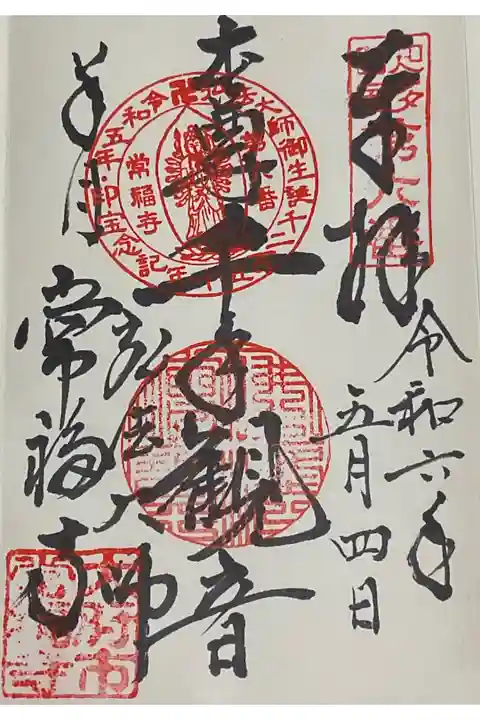 奉拝
令和六年
五月四日
本尊千手観音
弘法大師
半月
常福寺
大師御生誕千二百五十年記念
令和五年・印宝
常福寺